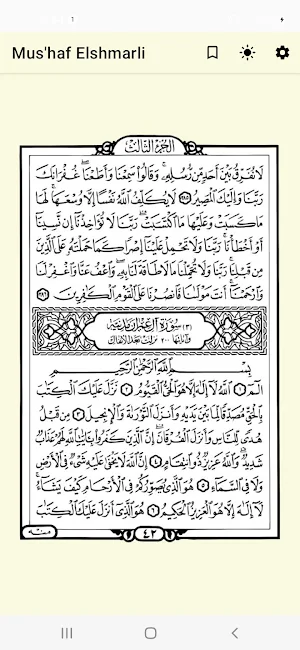 1
Mus'haf Elshmarli
الجزء الثالث
لَا نُفَرِّقُ بَيْنَ أَحَدٍ مِّن رُّسُلِهِۦ وَقَالُوا۟ سَمِعْنَا وَأَطَعْنَا غُفْرَانَكَ
رَبَّنَا وَإِلَيْكَ الْمَصِيرُ ٢٨٥ لَا يُكَلِّفُ اللَّهُ نَفْسًا إِلَّا وُسْعَهَا لَهَا
مَا كَسَبَتْ وَعَلَيْهَا مَا اكْتَسَبَتْ رَبَّنَا لَا تُؤَاخِذْنَا إِن نَّسِينَا
أَوْ أَخْطَأْنَا رَبَّنَا وَلَا تَحْمِلْ عَلَيْنَا إِصْرًا كَمَا حَمَلْتَهُ عَلَى الَّذِينَ
مِن قَبْلِنَا رَبَّنَا وَلَا تُحَمِّلْنَا مَا لَا طَاقَةَ لَنَا بِهِۦ وَاعْفُ عَنَّا وَاغْفِرْ لَنَا
وَارْحَمْنَا أَنتَ مَوْلَىٰنَا فَانصُرْنَا عَلَى الْقَوْمِ الْكَافِرِينَ ٢٨٦
(٣) سورة آل عمران مدنية
وآياتها ٢٠٠ نزلت بعد الأنفال
بِسْمِ اللَّهِ الرَّحْمَٰنِ الرَّحِيمِ
الٓمٓ ١ اللَّهُ لَا إِلَٰهَ إِلَّا هُوَ الْحَىُّ الْقَيُّومُ ٢ نَزَّلَ عَلَيْكَ الْكِتَٰبَ
بِالْحَقِّ مُصَدِّقًا لِّمَا بَيْنَ يَدَيْهِ وَأَنزَلَ التَّوْرَىٰةَ وَالْإِنجِيلَ ٣ مِن قَبْلُ
هُدًى لِّلنَّاسِ وَأَنزَلَ الْفُرْقَانَ إِنَّ الَّذِينَ كَفَرُوا۟ بِـَٔايَٰتِ اللَّهِ لَهُمْ عَذَابٌ
شَدِيدٌ وَاللَّهُ عَزِيزٌ ذُو انتِقَامٍ ٤ إِنَّ اللَّهَ لَا يَخْفَىٰ عَلَيْهِ شَىْءٌ فِى الْأَرْضِ
وَلَا فِى السَّمَاءِ ٥ هُوَ الَّذِى يُصَوِّرُكُمْ فِى الْأَرْحَامِ كَيْفَ يَشَاءُ
لَا إِلَٰهَ إِلَّا هُوَ الْعَزِيزُ الْحَكِيمُ ٦ هُوَ الَّذِى أَنزَلَ عَلَيْكَ الْكِتَٰبَ
منه
٤٢